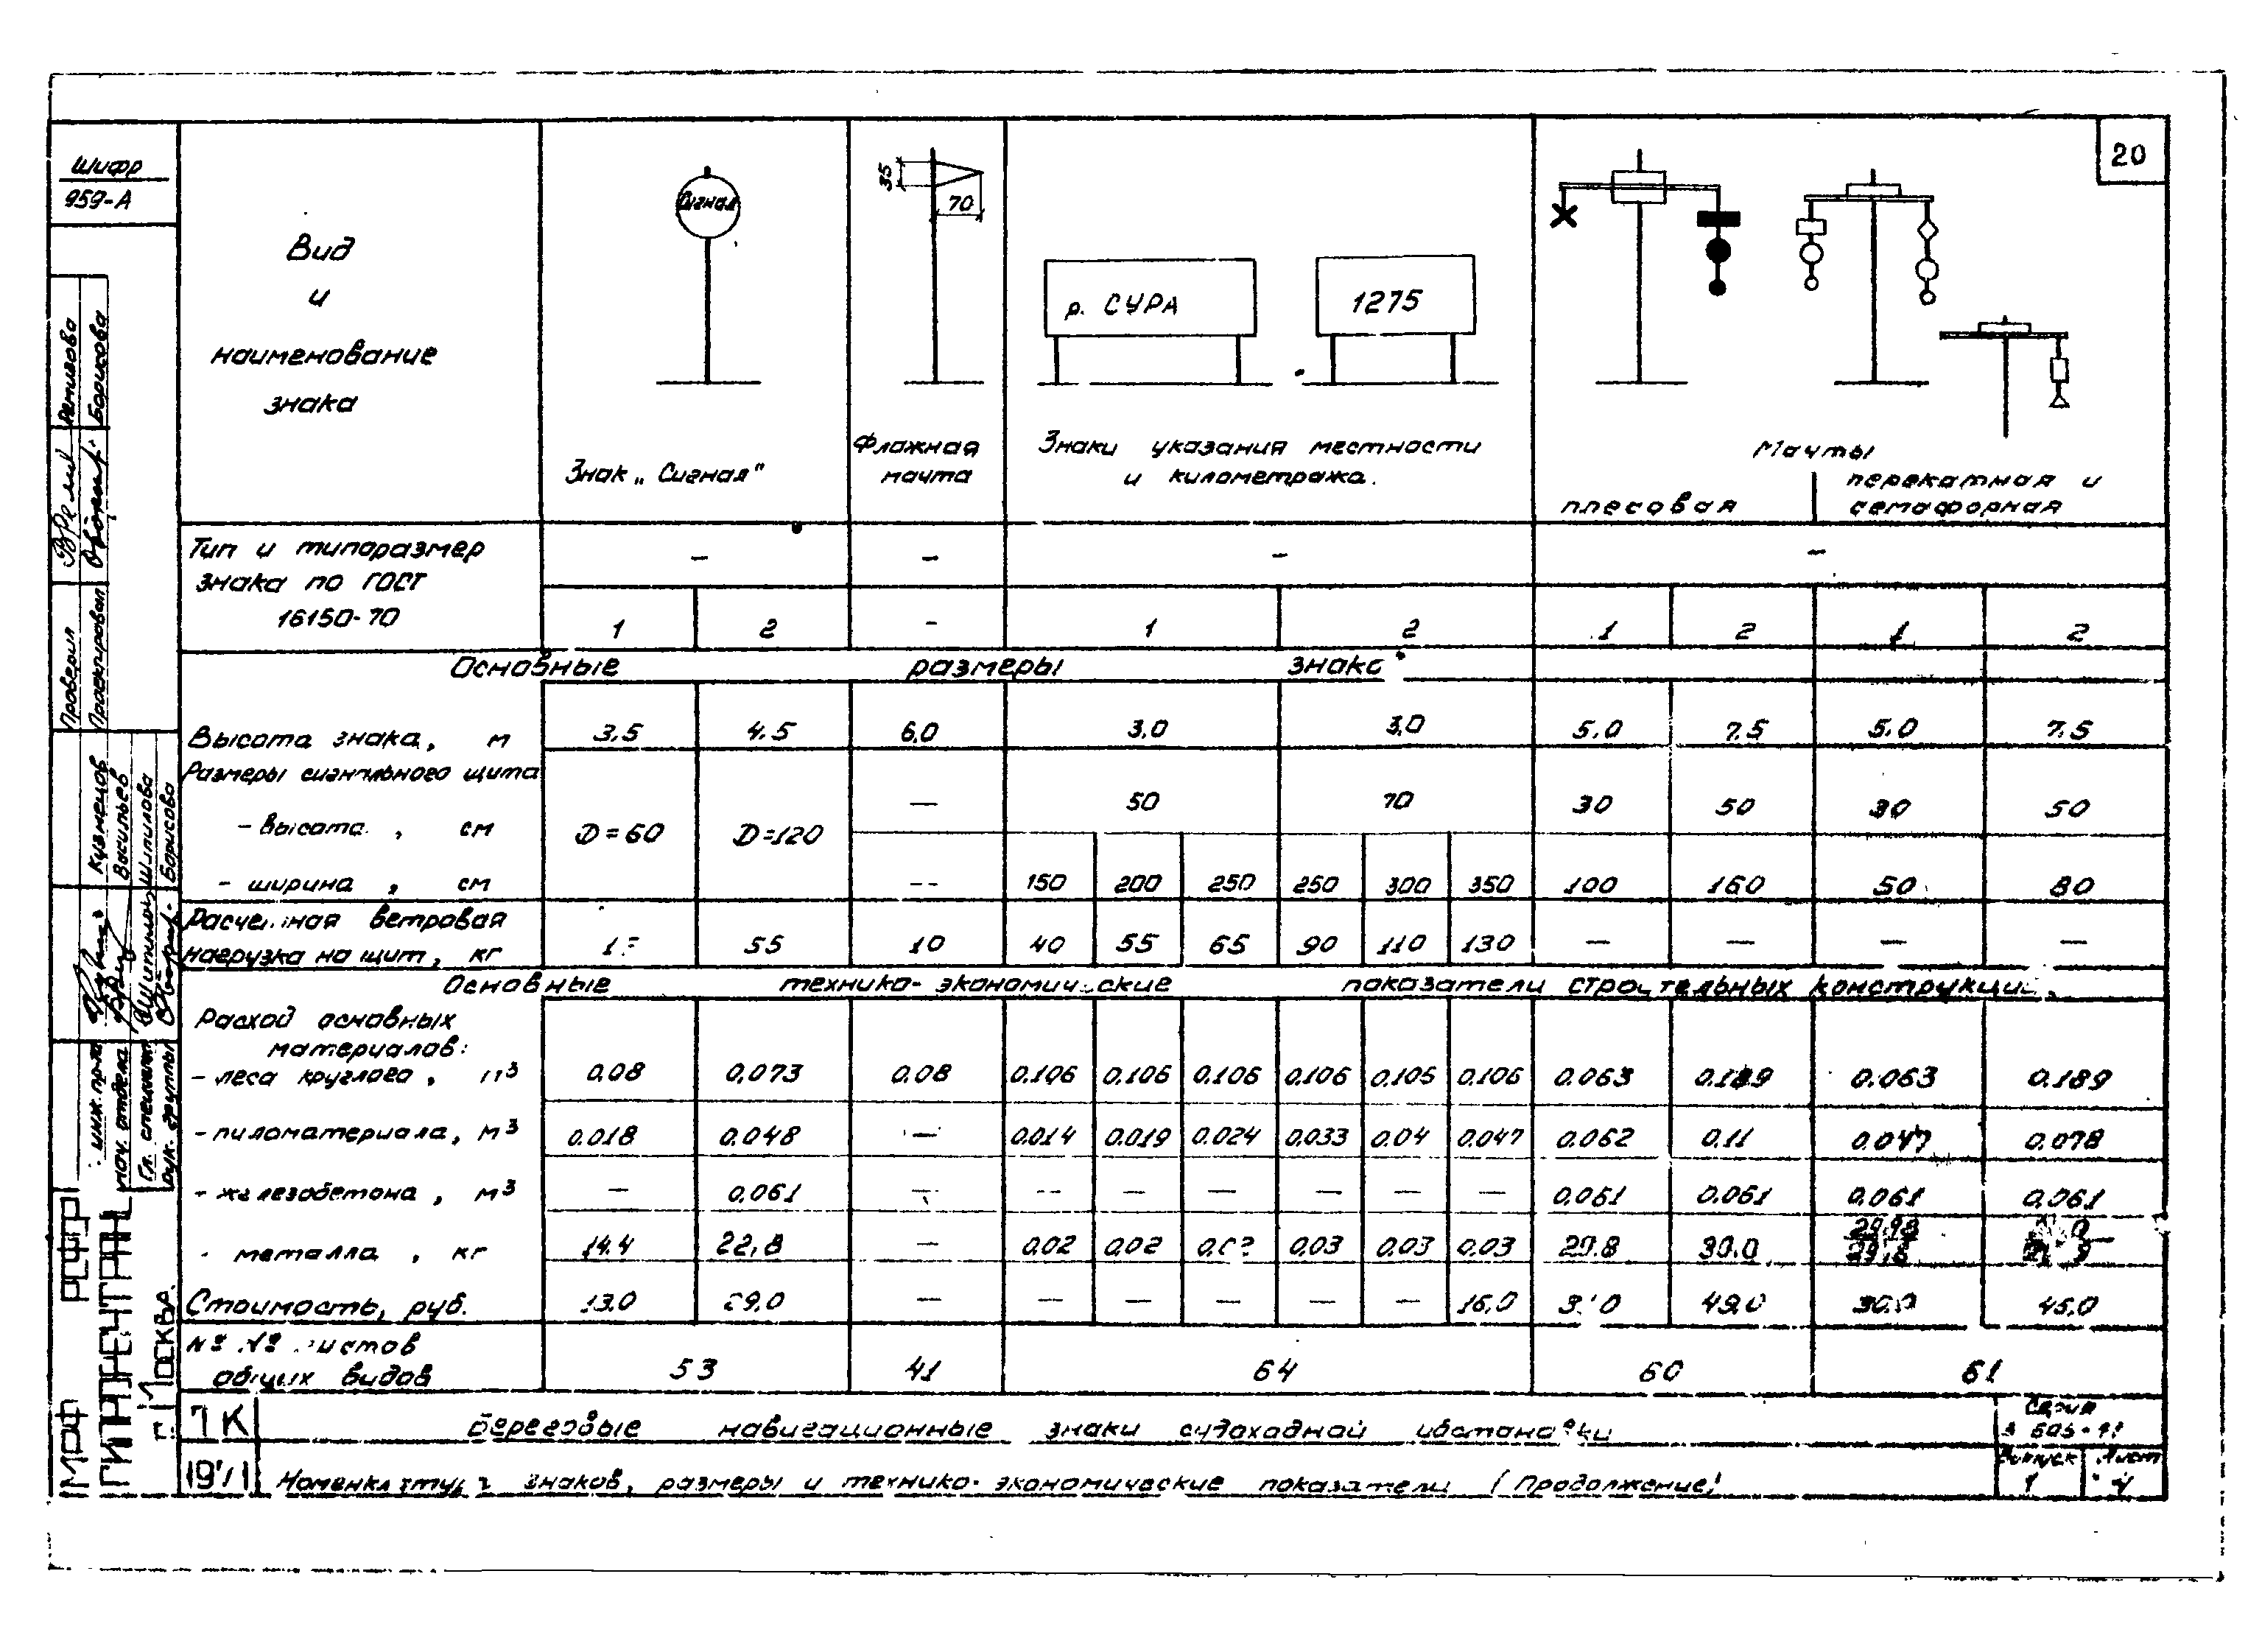 20
Шифр
959-А
Вид
и
наименование
знака
Сигнал
35
70
р. СУРА
1275
Знак „Сигнал"
Флажная
мачта
Знаки указания местности
и километража.
Мачты
плесовая
перекатная и
семафорная
Тип и типоразмер
знака по ГОСТ
16150-70
— — — —
1 2 - 1 2 1 2 1 2
Основные размеры знака
Высота знака, м 3.5 4.5 6.0 3.0 3.0 5.0 7.5 5.0 7.5
Размеры сигнального щита
- высота, см D=60 D=120 — 50 70 30 50 30 50
- ширина, см -- 150 200 250 250 300 350 100 160 50 80
Расчетная ветровая
нагрузка на щит, кг 55 10 40 55 65 90 110 130 — — — —
Основные технико-экономические показатели строительных конструкций.
Расход основных
материалов:
- леса круглого, м³ 0.08 0.073 0.08 0.106 0.106 0.106 0.106 0.105 0.106 0.063 0.189 0.063 0.189
- пиломатериала, м³ 0.018 0.048 — 0.014 0.019 0.024 0.033 0.04 0.047 0.062 0.11 0.047 0.078
- железобетона, м³ — 0.061 — -- — — — — — 0.061 0.061 0.061 0.061
- металла, кг 14.4 22,8 — 0.02 0.02 0.03 0.03 0.03 29.8 39.0
Стоимость, руб. 13.0 — — — — — — 16,0 49.0 30.0 45.0
№ № листов
общих видов 53 41 64 60 61
ТК
1971
Береговые навигационные знаки судоходной обстановки
Номенклатура знаков, размеры и технико-экономические показатели (Продолжение)
Серия
Выпуск
1
Лист
4
Ремизова
Борисова
Проверил
Проектировал
Кузнецов
Васильев
Шпилова
Борисова
инж. пр-та
нач. отдела
Гл. специалист
рук. группы
МРФ РСФСР
ГИПРОРЕЧТРАНС
г. Москва.